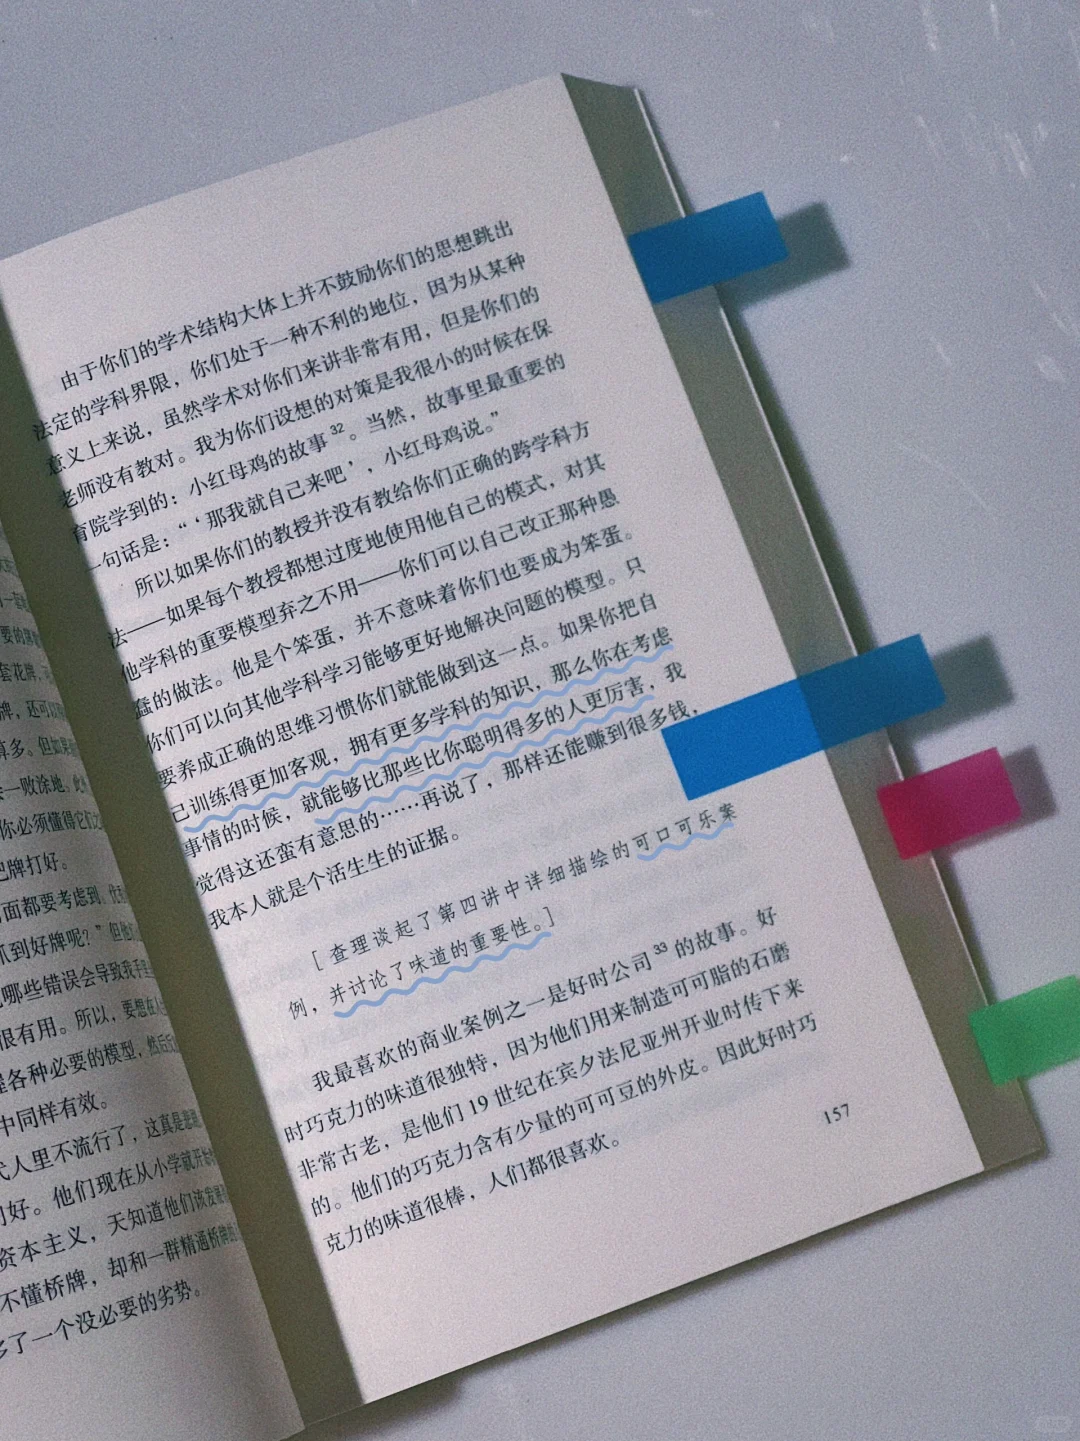 套花牌，
牌，还
算多。但如果
会一败涂地。
你必须懂得它们
把牌打好。
面都要考虑到。
抓到好牌呢？”但他
哪些错误会导致我手里
很有用。所以，要想在人
各种必要的模型，然后
中同样有效。
代人里不流行了，这真是
好。他们现在从小学就开始
资本主义，天知道他们该发展
不懂桥牌，却和一群精通桥牌的
多了一个没必要的劣势。
由于你们的学术结构大体上并不鼓励你们的思想跳出
法定的学科界限，你们处于一种不利的地位，因为从某种
意义上来说，虽然学术对你们来讲非常有用，但是你们的
老师没有教对。我为你们设想的对策是我很小的时候在保
育院学到的：小红母鸡的故事32。当然，故事里最重要的
一句话是：“‘那我就自己来吧’，小红母鸡说。”
所以如果你们的教授并没有教给你们正确的跨学科方
法——如果每个教授都想过度地使用他自己的模式，对其
他学科的重要模型弃之不用——你们可以自己改正那种愚
蠢的做法。他是个笨蛋，并不意味着你们也要成为笨蛋。
你们可以向其他学科学习能够更好地解决问题的模型。只
要养成正确的思维习惯你们就能做到这一点。如果你把自
己训练得更加客观，拥有更多学科的知识，那么你在考虑
事情的时候，就能够比那些比你聪明得多的人更厉害，我
觉得这还蛮有意思的……再说了，那样还能赚到很多钱，
我本人就是个活生生的证据。
［查理谈起了第四讲中详细描绘的可口可乐案
例，并讨论了味道的重要性。］
我最喜欢的商业案例之一是好时公司33的故事。好
时巧克力的味道很独特，因为他们用来制造可可脂的石磨
非常古老，是他们19世纪在宾夕法尼亚州开业时传下来
的。他们的巧克力含有少量的可可豆的外皮。因此好时巧
克力的味道很棒，人们都很喜欢。
157